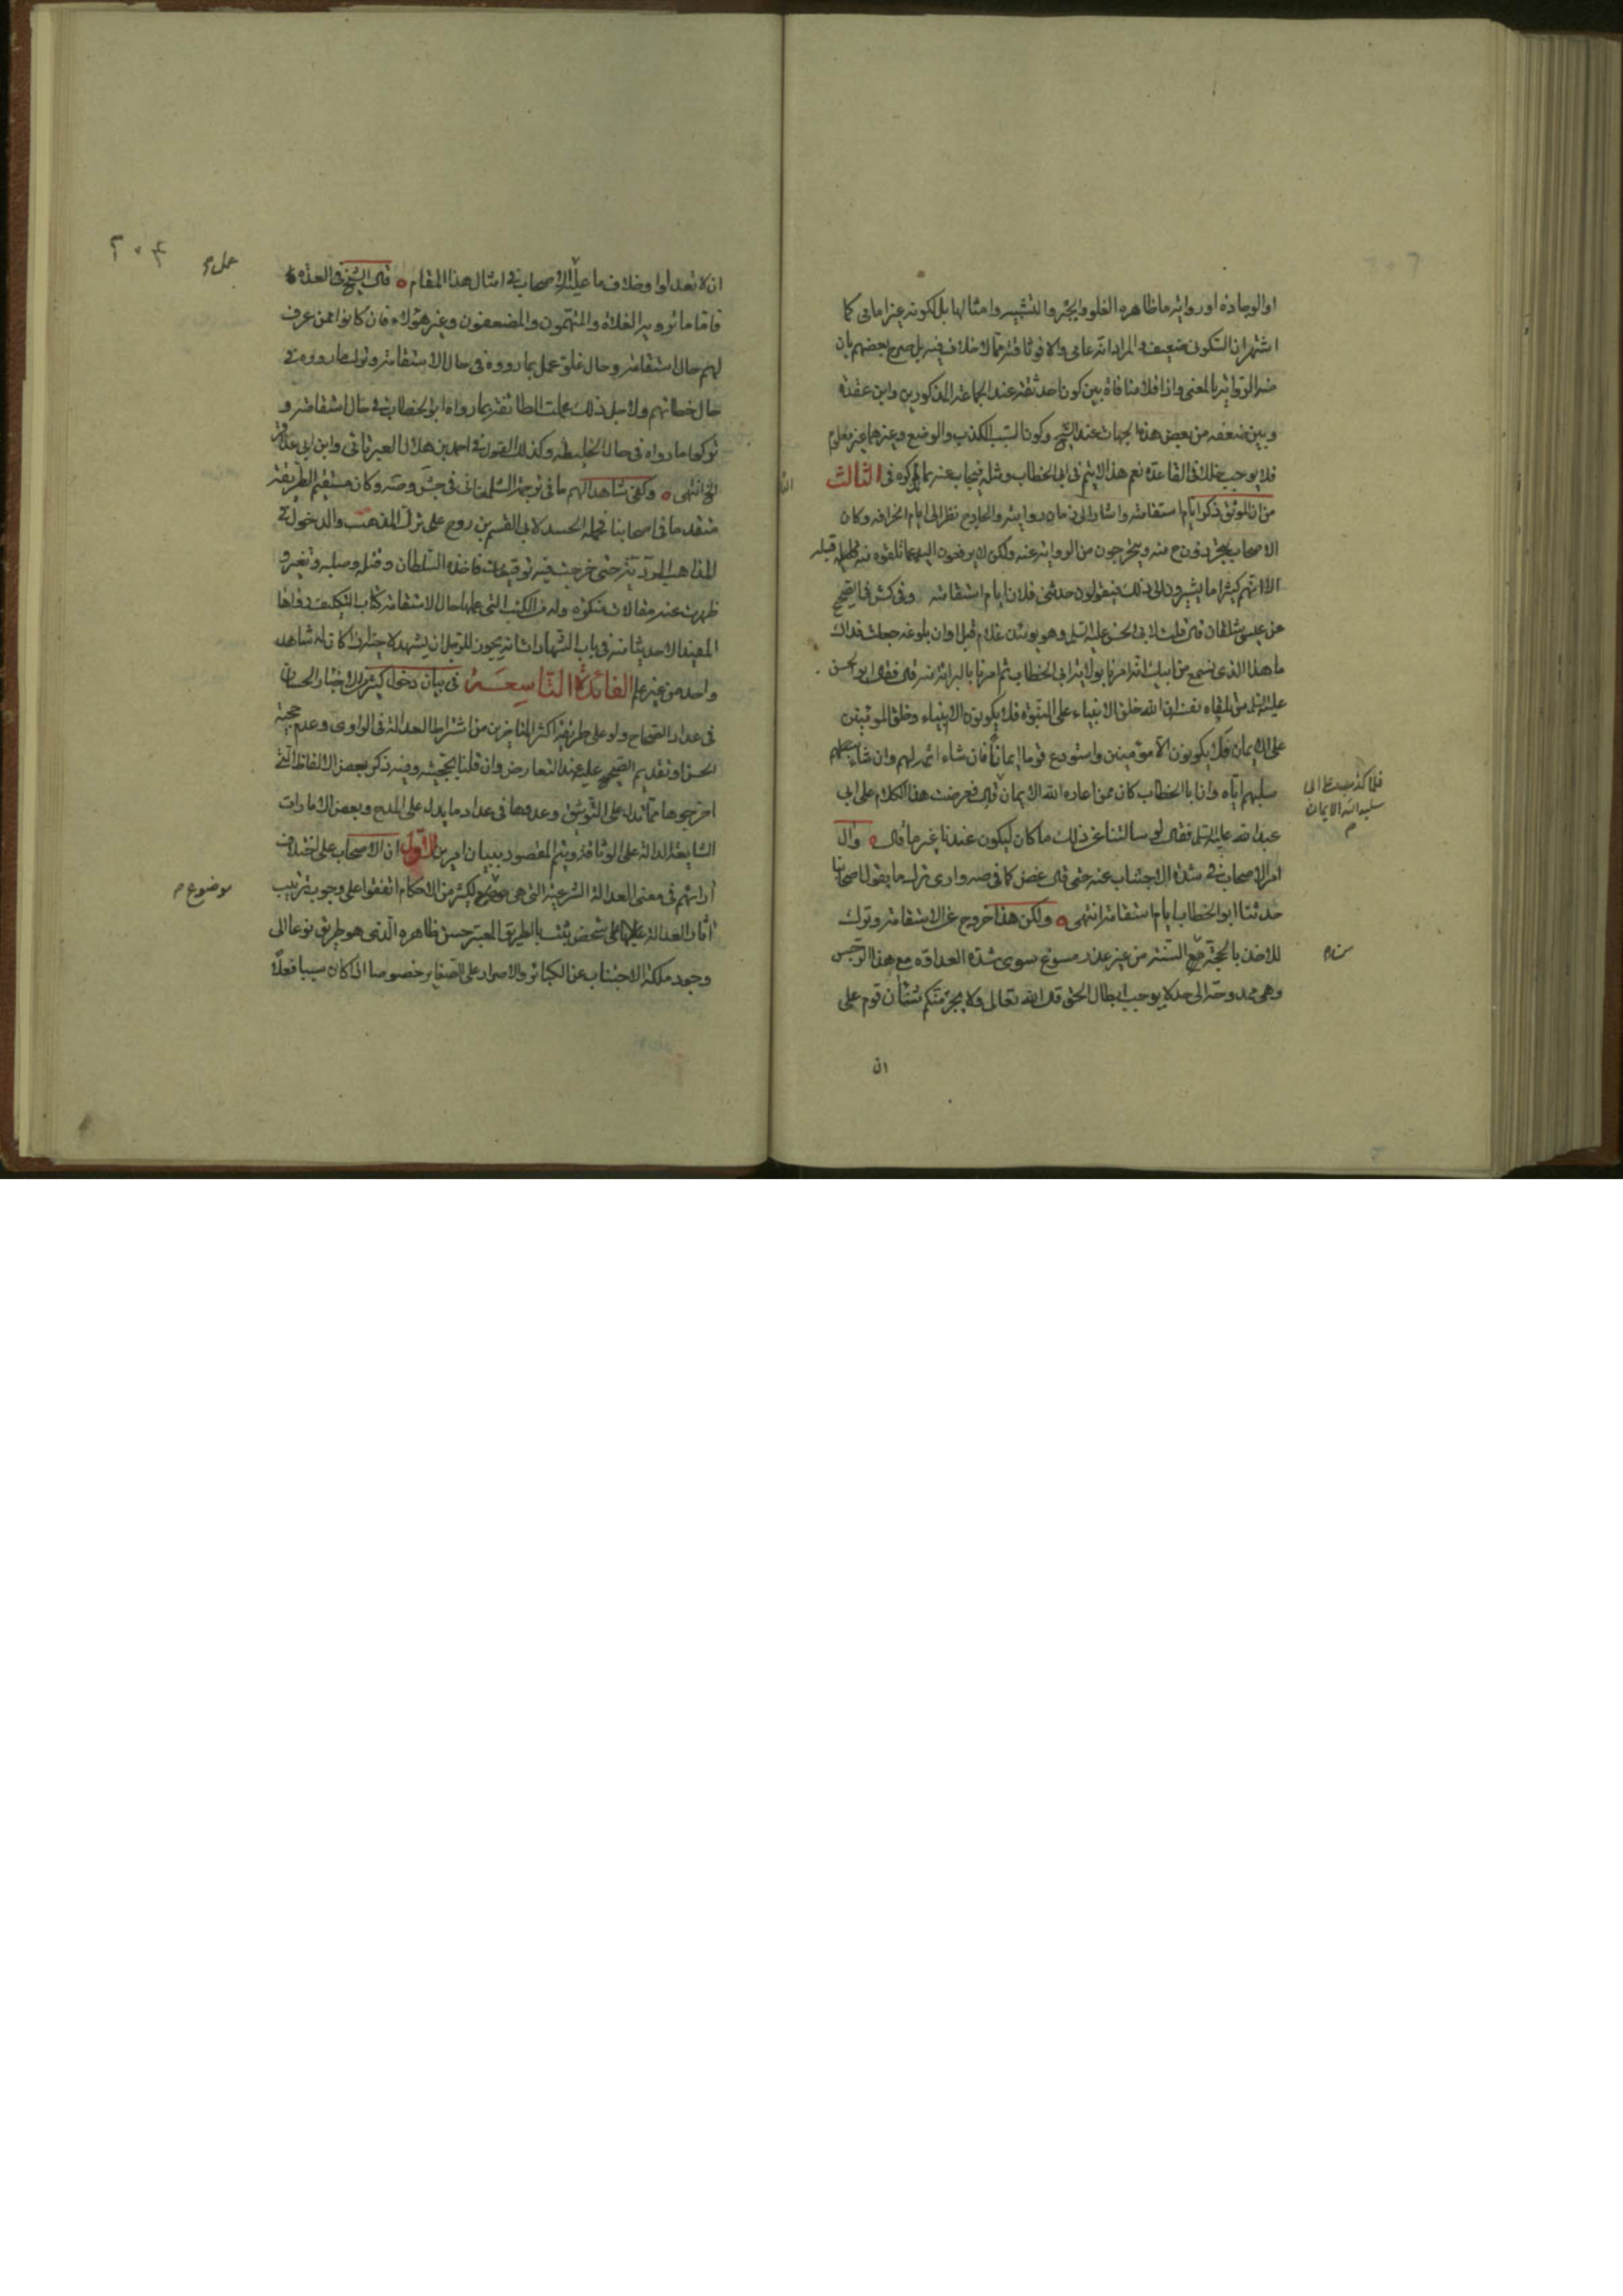 او الوجادة او روايته ما ظاهره الغلو والجبر والتشبيه وامثالها بل لكونه غير امامى كما
اشتهر ان السكونى ضعيف والمراد انه عامى والا فوثاقته مما لا خلاف فيه بل صرح بعضهم بان
خبر الواحد بالمعنى واذا فلا منافاة بين كون احد ثقة عند الجماعة المذكورين وابن عقدة
وبين ضعفه من بعض هذه الجهات عند الشيخ وكون السبب الكذب والوضع وغيرهما غير معلوم
فلا يوجب خللا فى القاعدة نعم هذا لا يتم فى ابى الخطاب ومثله فيجاب عنه بما ذكروه فى الثالث
من ان الموثق ذكر ايام استقامته واشار الى زمان روايته والجارح نظر الى ايام انحرافه وكان
الاصحاب بمجرد ذلك منه ويتحرجون من الرواية عنه ولكن لا يرفعون اليد عما تلقوه منه قبله
الا انهم كثيرا ما يشيرون الى ذلك فيقولون حدثنى فلان ايام استقامته وفى كش فى الصحيح
عن عيسى شلقان قال قلت لابى الحسن عليه السلم وهو يومئذ غلام قبل اوان بلوغه جعلت فداك
ما هذا الذى نسمع من ابيك انه امرنا بولاية ابى الخطاب ثم امرنا بالبراءة منه قال فقال ابو الحسن
عليه السلم من تلقاء نفسه ان الله خلق الانبياء على النبوة فلا يكونون الا انبياء وخلق المؤمنين
على الايمان فلا يكونون الا مؤمنين واستودع قوما ايمانا فان شاء اتمه لهم وان شاء
سلبهم اياه وان ابا الخطاب كان ممن اعاره الله الايمان قال فعرضت هذا الكلام على ابى
فلما كذب على ابى
سلبه الله الايمان
م
عبد الله عليه السلم فقال لو سالتنا عن ذلك ما كان ليكون عندنا غير ما قال وال
امر الاصحاب فى شدة الاجتناب عنه حتى قال غض كما فى صه وارى ترك ما يقول اصحابنا
حدثنا ابو الخطاب ايام استقامته انتهى ولكن هذا خروج عن الاستقامة وترك
للاخذ بالحجة مع التستر من غير عذر مسوغ سوى شدة العداوة مع هذا الرجس
وهى ممدوحة الى حد لا يوجب ابطال الحق قال الله تعالى ولا يجرمنكم شنأن قوم على
ان
٢٠٤
ان لا تعدلوا وخلاف ما عليه الاصحاب فى امثال هذا المقام قال الشيخ فى العدة
فاما ما ترويه الغلاة والمتهمون والمضعفون وغير هؤلاء فان كانوا ممن عرف
لهم حال استقامة وحال غلو عمل بما رووه فى حال الاستقامة وترك ما رووه فى
حال خطائهم ولاجل ذلك عملت الطائفة بما رواه ابو الخطاب فى حال استقامته و
تركوا ما رواه فى حال تخليطه وكذلك القول فى احمد بن هلال العبرتائى وابن ابى عذافر
الخ انتهى وكفى شاهدا لهم ما فى ترجمة الشلمغانى فى جش وصه وكان مستقيم الطريقة
متقدما فى اصحابنا فحمله الحسد لابى القسم بن روح على ترك المذهب والدخول فى
المذاهب الردية حتى خرجت فيه توقيعات فاخذه السلطان وقتله وصلبه وتغير و
ظهرت عنه مقالات منكرة وله من الكتب التى عملها حال الاستقامة كتاب التكليف رواها
المفيد الا حديثا منه فى باب الشهادات انه يجوز للرجل ان يشهد لاخيه اذا كان له شاهد
واحد من غير علم الفائدة التاسعة فى بيان دخول كثير من الاخبار الحسان
فى عداد الصحاح ولو على طريقة اكثر المتاخرين من اشتراط العدالة فى الراوى وعدم حجية
الحسن او تقديم الصحيح عليه عند التعارض وان قلنا بحجيته وفيه ذكر بعض الالفاظ التى
اخرجوها مما تدل على التوثيق وعدوها فى عداد ما يدل على المدح وبعض الامارات
الشايعة الدالة على الوثاقة ويتم المقصود ببيان امرين الاول ان الاصحاب على اختلاف
آرائهم فى معنى العدالة الشرعية التى هى لكثير من الاحكام اتفقوا على وجوب ترتيب
موضوع م
آثار العدالة على شخص يثبت بالطريق المعتبر حسن ظاهره الذى هو طريق نوعا الى
وجود ملكة الاجتناب عن الكبائر والاصرار على الصغاير خصوصا اذا كان سببا فعلا